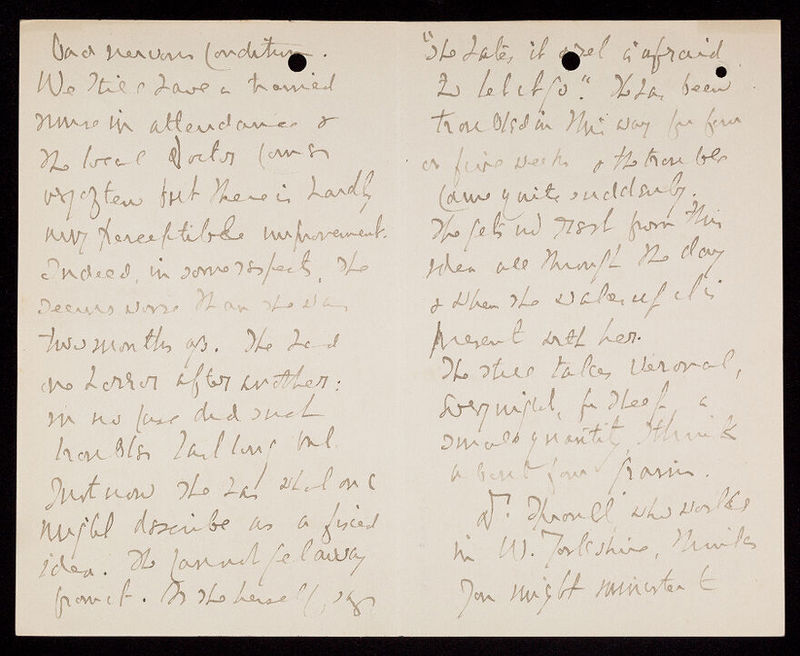 bad nervous condition.
We still have a trained
nurse in attendance &
the local Doctor comes
very often but there is hardly
any perceptible improvement.
Indeed, in some respects, she
seems worse than she was
two months ago. She had
one horror after another:
in no case did such
troubles last long but
Just now she has what one
might describe as a fixed
idea. She cannot get away
from it. As she herself says
"She hates it and is afraid
to let it go." She has been
troubled in this way for four
or five weeks & the trouble
came quite suddenly.
She gets no rest from this
idea all through the day
& when she wakes up it is
present with her.
She still takes Veronal,
every night, for sleep a
small quantity, I think
about four grains.
Dr. who works
in W. Yorkshire, thinks
you might minister t